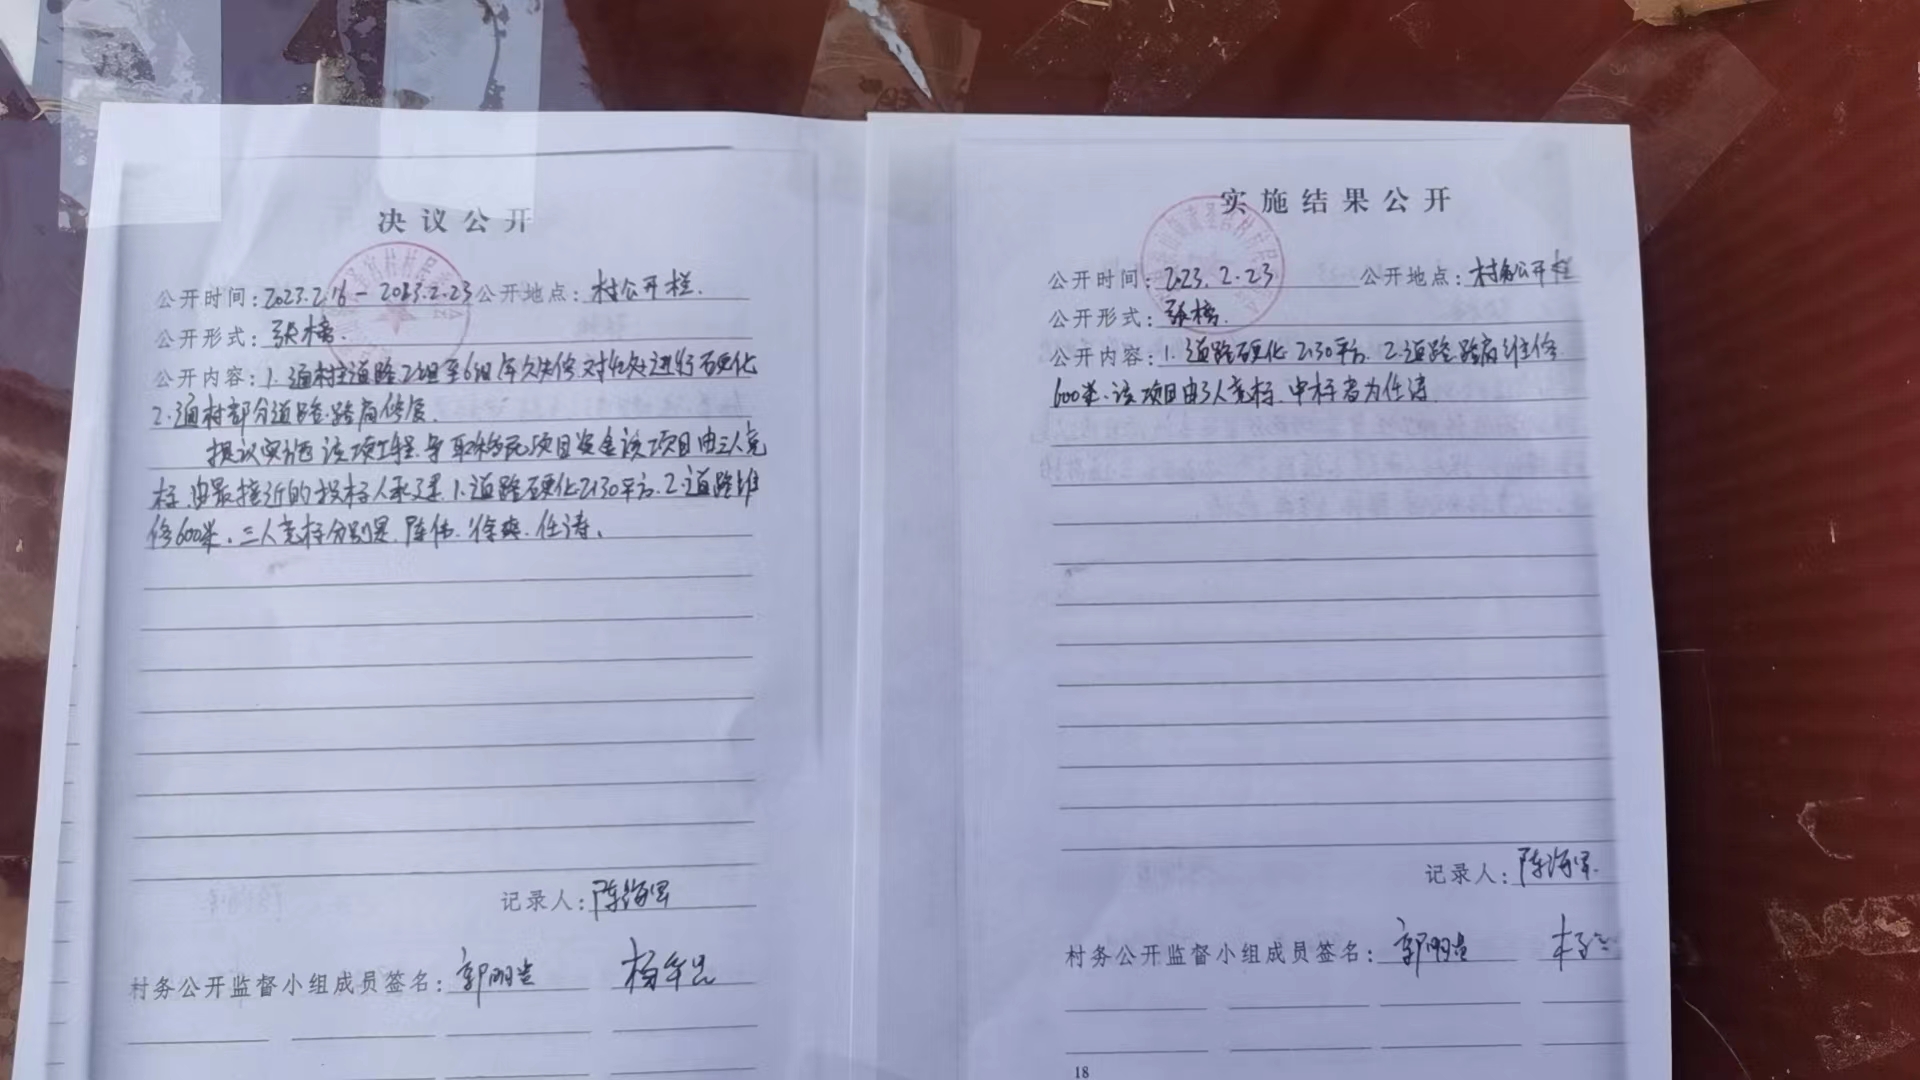 决议公开
公开时间:2023.2.16-2023.2.23 公开地点:村公开栏.
公开形式:张榜.
公开内容:1.通村主道路2组至6组年久失修,对 处进行硬化
2.通村部分道路路肩修复.
提议实施该项工程, 取移民项目资金该项目由三人竞
标,由最接近的投标人承建.1.道路硬化2130平方.2.道路维
修600米.三人竞标分别是.陈伟.徐爽.任涛.
记录人:陈海军
村务公开监督小组成员签名:郭明 杨
实施结果公开
公开时间:2023.2.23 公开地点:村务公开栏
公开形式:张榜.
公开内容:1.道路硬化2130平方.2.道路路肩维修
600米.该项目由3人竞标.中标者为任涛
记录人:陈海军.
村务公开监督小组成员签名:郭明
18